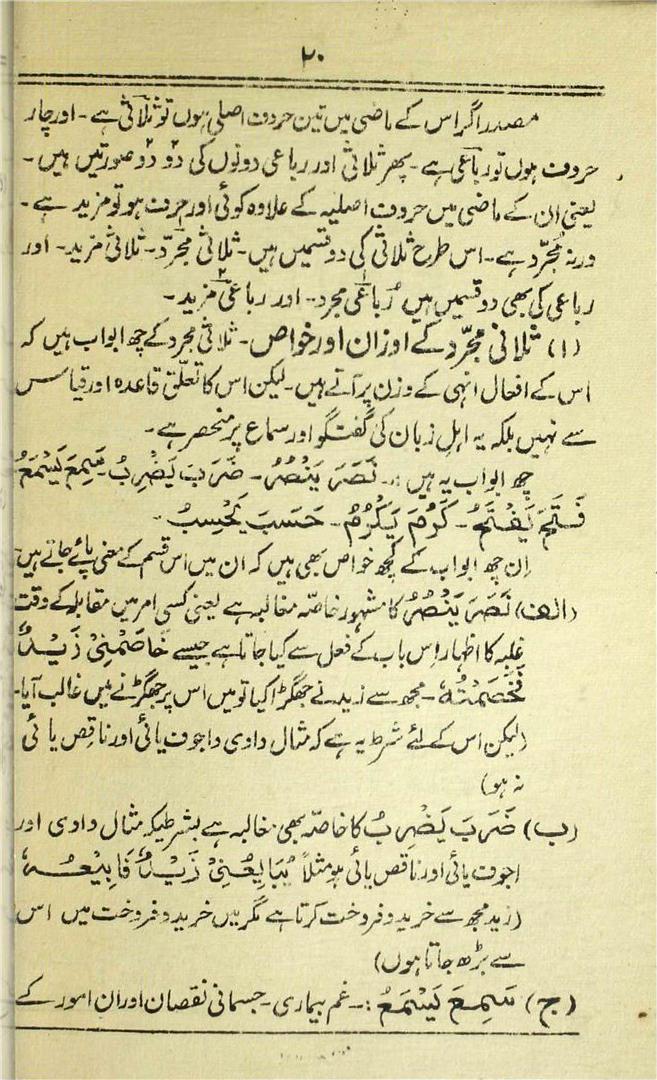 ۲۰
مصدر اگر اس کے ماضی میں تین حروف اصلی ہوں تو ثلاثی ہے ۔ اور چار
حروف ہوں تو رباعی ہے ۔ پھر ثلاثی اور رباعی دونوں کی دو دو صورتیں ہیں ۔
یعنی ان کے ماضی میں حروف اصلیہ کے علاوہ کوئی اور حرف ہو تو مزید ہے ۔
ورنہ مجرّد ہے ۔ اس طرح ثلاثی کی دو قسمیں ہیں ۔ ثلاثی مجرّد ۔ ثلاثی مزید ۔ اور
رباعی کی بھی دو قسمیں ہیں رباعی مجرد ۔ اور رباعی مزید ۔
(۱) ثلاثی مجرّد کے اوزان اور خواص ۔ ثلاثی مجرد کے چھ ابواب ہیں کہ
اس کے افعال انہی کے وزن پر آتے ہیں ۔ لیکن اس کا تعلّق قاعدہ اور قیاس
سے نہیں بلکہ یہ اہلِ زبان کی گفتگو اور سماع پر منحصر ہے ۔
چھ ابواب یہ ہیں :۔ نَصَرَ یَنْصُرُ ۔ ضَرَبَ یَضْرِبُ ۔ سَمِعَ یَسْمَعُ
فَتَحَ یَفْتَحُ ۔ کَرُمَ یَکْرُمُ ۔ حَسَبَ یَحْسِبُ ۔
اِن چھ ابواب کے کچھ خواص بھی ہیں کہ ان میں اس قسم کے معنی پائے جاتے ہیں ۔
(الف) نَصَرَ یَنْصُرُ کا مشہور خاصّہ مغالبہ ہے یعنی کسی امر میں مقابلہ کے وقت
غلبہ کا اظہار اِس باب کے فعل سے کیا جاتا ہے جیسے خَاصَمَنِیْ زَیْدٌ
فَخَصَمْتُہٗ ۔ مجھ سے زید نے جھگڑا کیا تو میں اس پر جھگڑنے میں غالب آیا ۔
(لیکن اس کے لئے شرط یہ ہے کہ مثال واوی و اجوف یائی اور ناقص یائی
نہ ہو)
(ب) ضَرَبَ یَضْرِبُ کا خاصّہ بھی مغالبہ ہے بشرطیکہ مثال واوی اور
اجوف یائی اور ناقص یائی ہو مثلاً یُبَایِعُنِیْ زَیْدٌ فَاَبِیْعُہٗ
(زید مجھ سے خرید و فروخت کرتا ہے مگر میں خرید و فروخت میں اس
سے بڑھ جاتا ہوں)
(ج) سَمِعَ یَسْمَعُ :۔ غم بیماری ۔ جسمانی نقصان اور ان امور کے